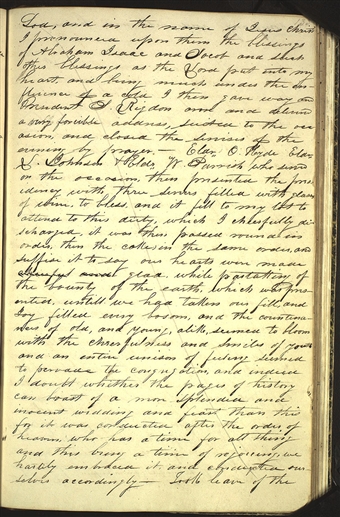 God, and in the name of Jesus Christ
I pronounced upon them the blessings
of Abraham Isaac and Jacob and such
other blessings as the Lord put into my
heart, and being much under the in-
fluence of a cold I then gave way and
President S. Rigdon arose and delivered
a very forcible address, suited to the occ
asion, and closed the services of the
evening by prayer,— Elder O. Hyde Elder
L. Johnson & Elder W. Parrish who served
on the occasion, then presented the presi
dency with three servers filled with glasses
of wine, to bless, and it fell to my lot to
attend to this duty, which I cheerfully di-
scharged, it was then passed round in
order, then the cake, in the same order, and
suffise it to say our hearts were made
cheerful and glad, while partaking of
the bounty of the earth, which was pres
ented, untill we had taken our fill, and
Joy filled every bosom, and the countena-
nces of old, and young, alike, seemed to bloom
with the cheerfulness and smiles of youth
and an entire unison of feeling seemed
to pervade the congregation, and indeed
I doubt whether the pages of history
can boast of a more splendid and
inocent wedding and feast than this
for it was conducted after the order of
heaven, who has a time for all things
and this being a time of rejoicing, we
hartily embraced it, and conducted our-
selves accordingly— Took leave of the